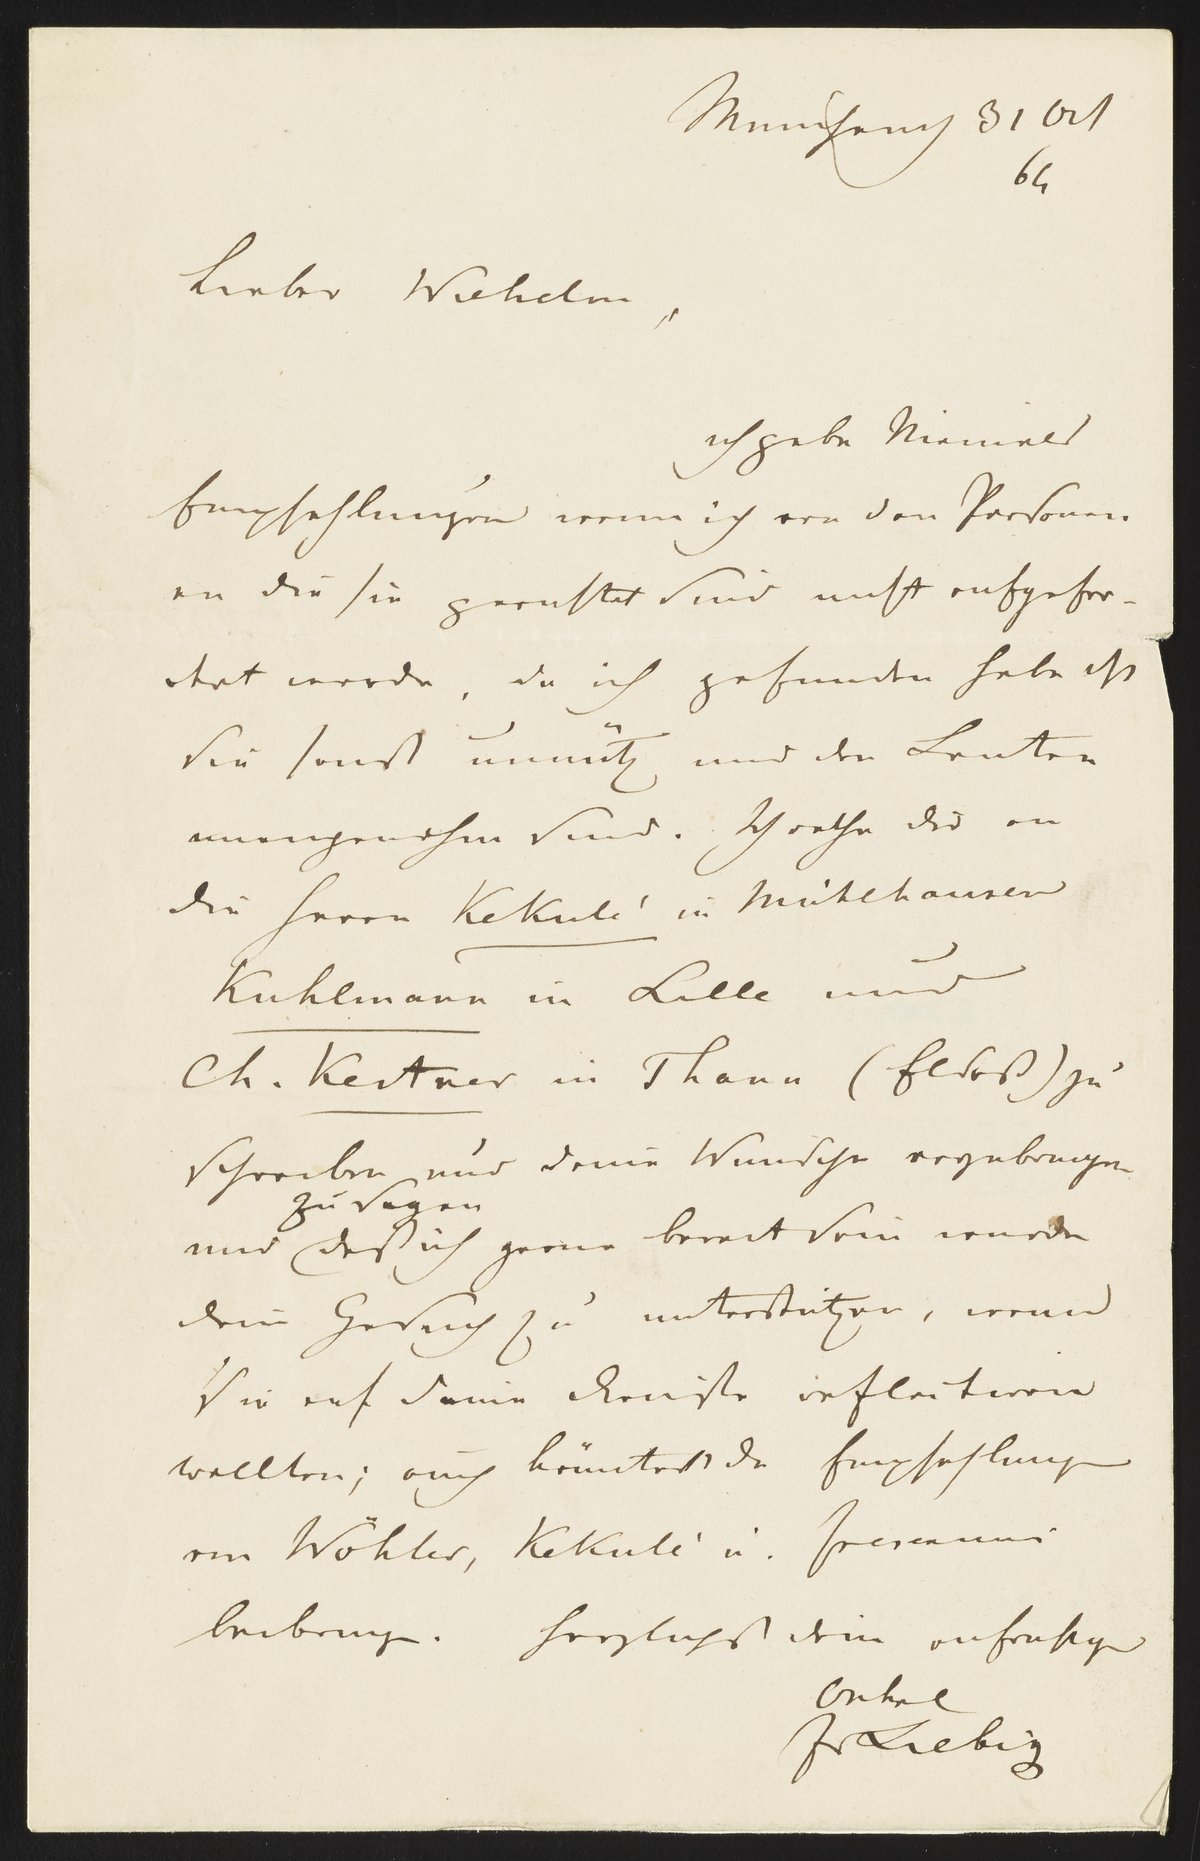 München 31 Oct
64
Lieber Wilhelm,
ich gebe Niemals
Empfehlungen wenn ich von den Personen
an die sie gerichtet sind nicht aufgefor-
dert werde, da ich gefunden habe dss
sie sonst unnütz und den Leuten
unangenehm sind. Ich rathe dir an
die Herrn Kekulé in Mühlhausen
Kuhlmann in Lille und
Ch. Kestner in Thann (Elsaß) zu
schreiben und deine Wünsche vorzubringen
zu sagen
und daß ich gerne bereit sein würde
dein Gesuch zu unterstützen, wenn
Sie auf deine Dienste reflectiren
wollten; auch könntest du Empfehlungen
von Wöhler, Kekulé u. Fresenius
beibringen. Herzlichst dein aufrichtiger
Onkel
Jv Liebig